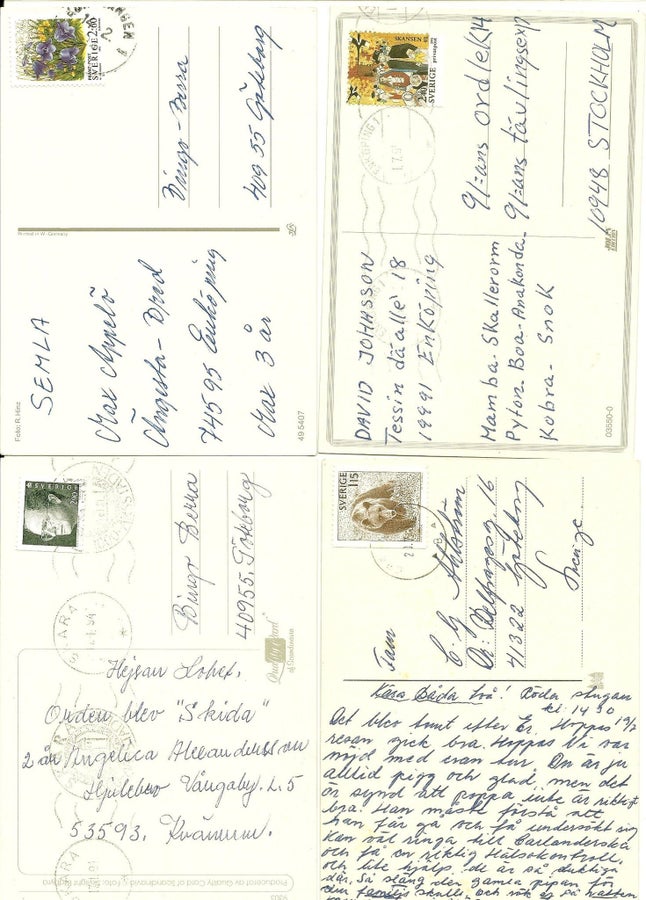 SVERIGE 2:80
Bingo-Berra
409 55 Göteborg
Printed in W.-Germany
SEMLA
Max Appelö
Ängesta-Bred
74595 Enköping
Max 3 år
Foto: R. Hinz
49 5407
SKANSEN
SVERIGE 2:40
1.7.
91:ans ordlek 14
91:ans tävlingsexp
10948 STOCKHOLM
DAVID JOHASSON
Tessin däallè 18
19991 ENKÖPING
Mamba-Skallerorm
Pyton-Boa-Anakonda
Kobra-Snok
03550-0
SVERIGE
SKARA
Bingo Berna
40955, Göteborg
Quality Card
of Scandinavia
Hejsan Lobet.
Orden blev "Skida"
2 år Angelica Alexandersson
Hjulebo Vångaby. L. 5
53593. Kvänum.
SKARA
Producent for Quality Card of Scandinavia
SVERIGE 115
Fam
C. G. Ahlström
41322 Göteborg
Sverige
Kära Båda två! Röda stugan
kl. 14 30
19/7
Det blev tomt efter Er. Hoppas
resan gick bra. Hoppas Ni var
nöjd med eran tur. Du är ju
alltid pigg och glad, men det
är synd att pappa inte är riktigt
bra. Han måste förstå att
han får gå och få undersökt sig
kan väl ringa till Carlanderska
och få en riktig Hälsokontroll,
och lite hjälp. de är så duktiga
där. Så släng den gamla pipan för